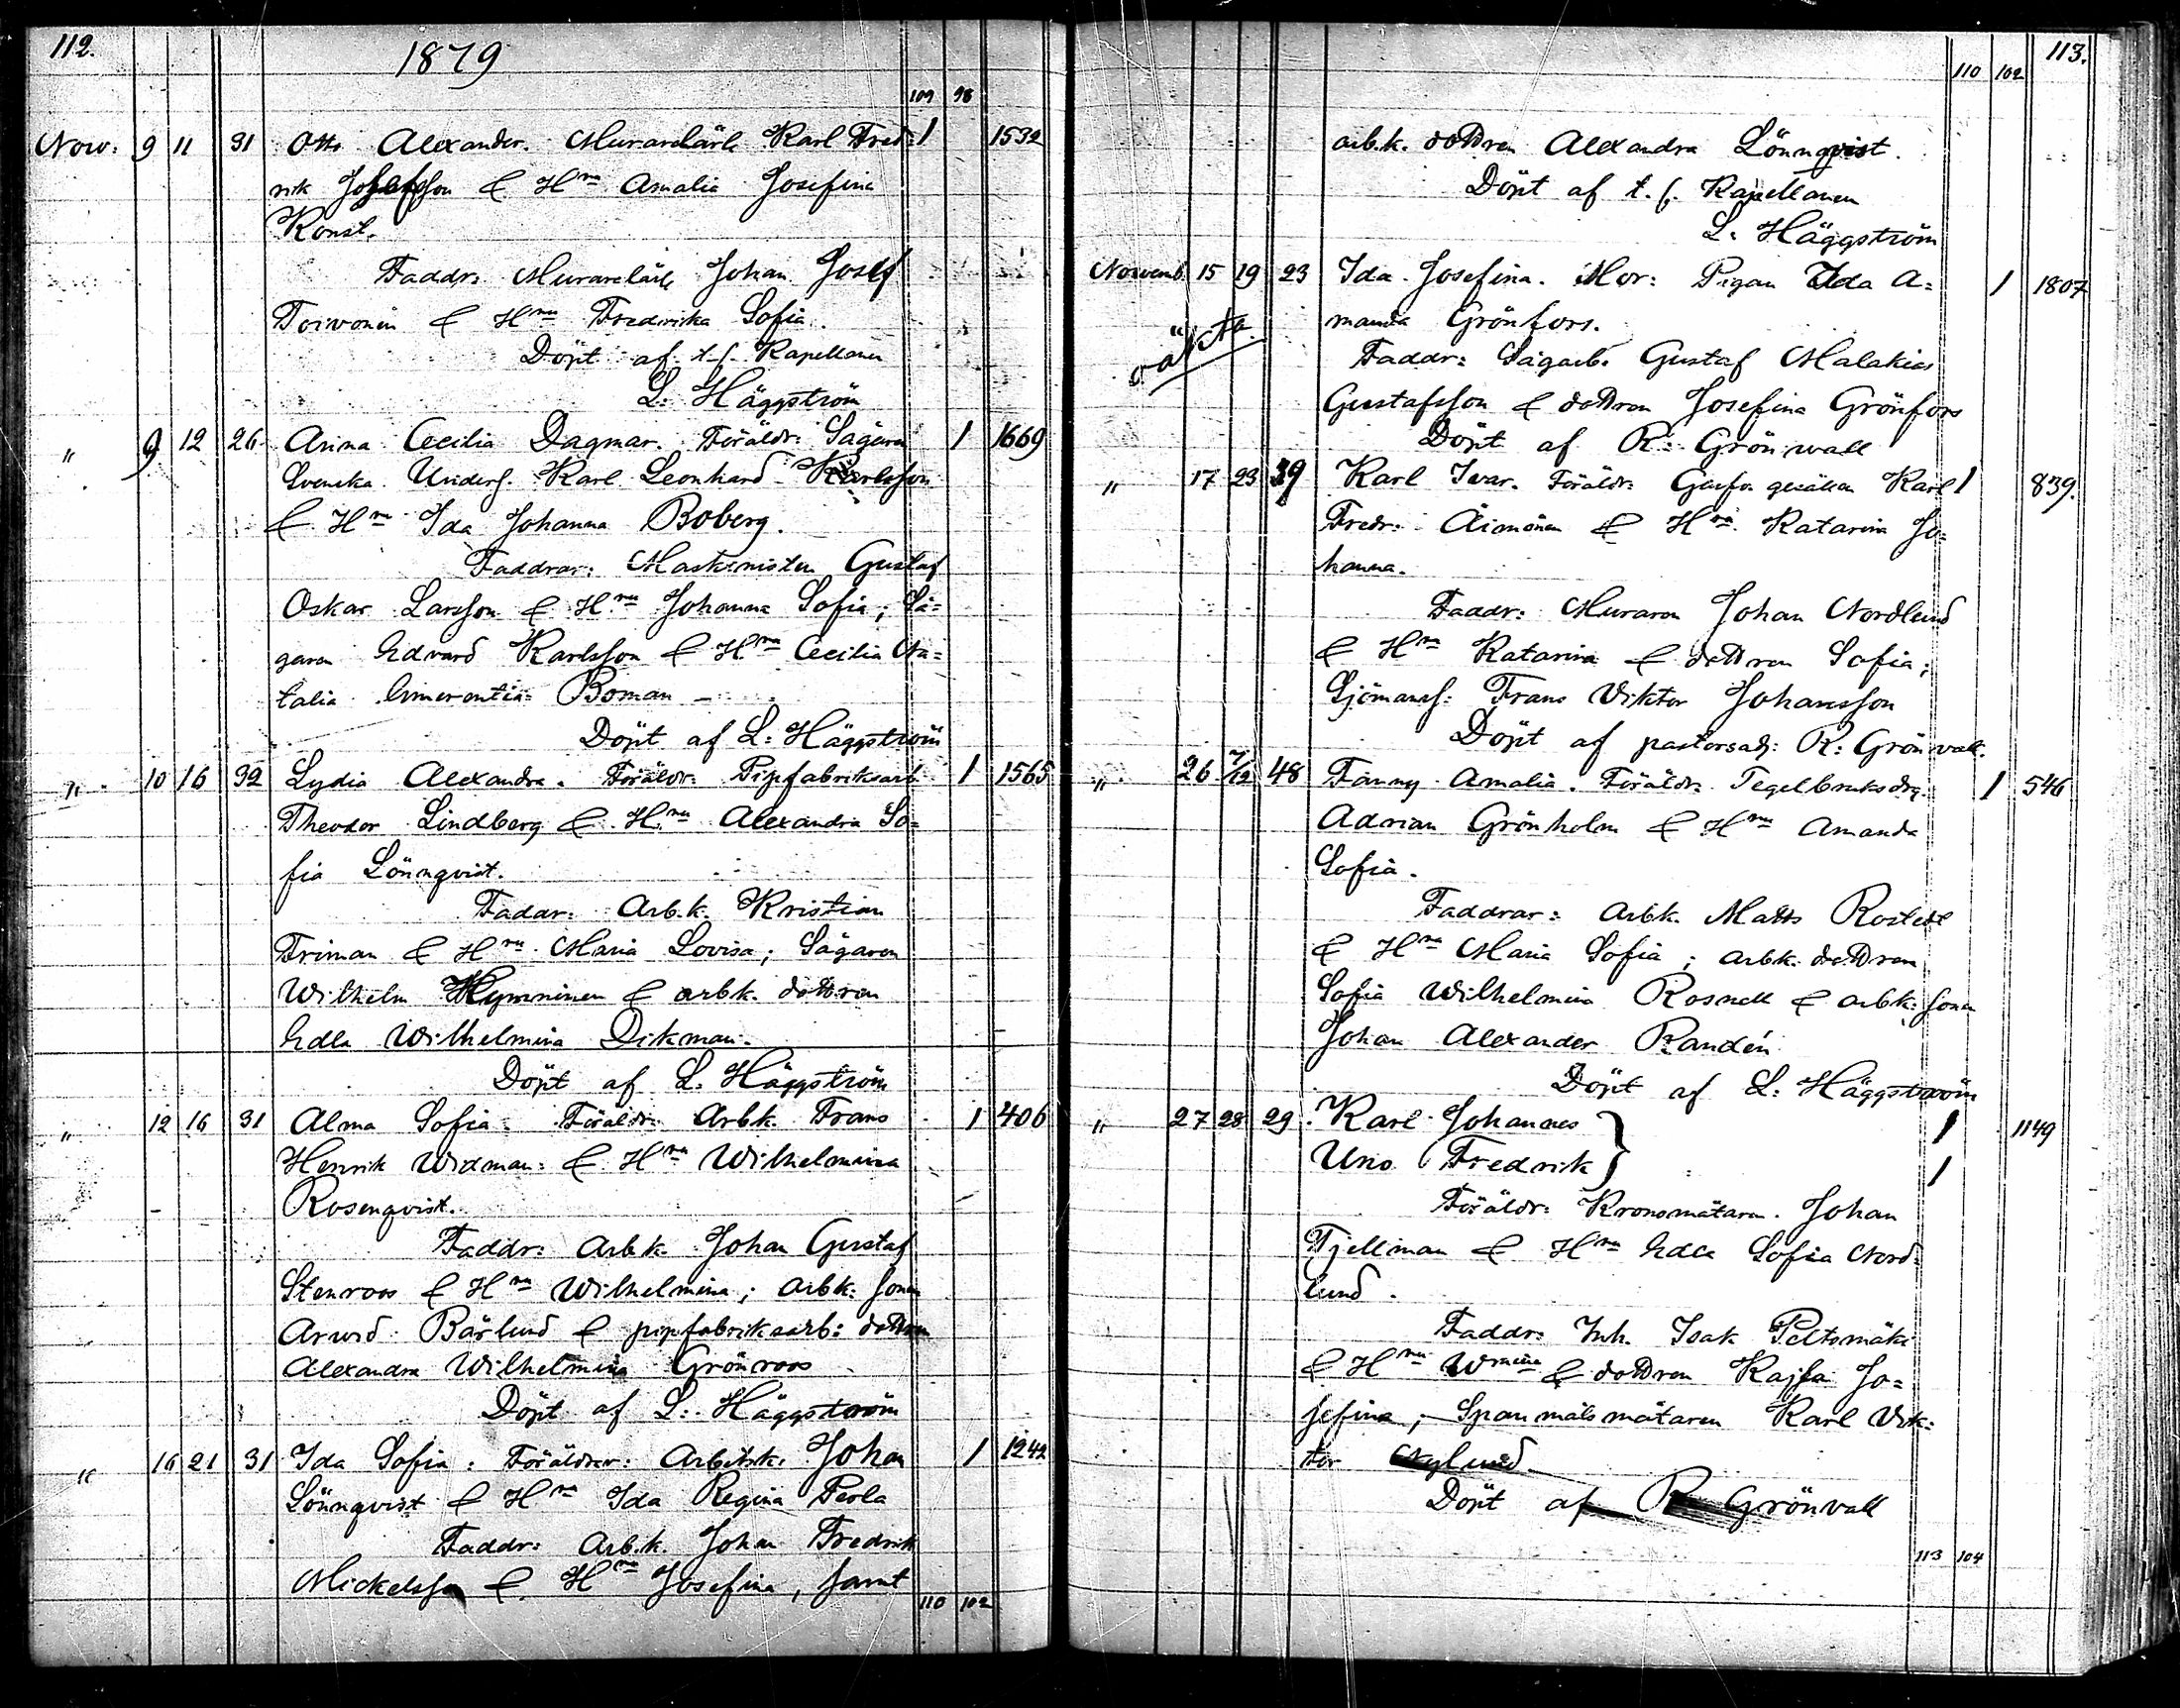 112.
1879
109 98
Nov. 9 11 31 Otto Alexander. Murarelärl. Karl Fred- 1 1532
rik Josefsson & Hru Amalia Josefina
Konst.
Faddr: Murarelärl. Johan Josef
Toivonen & Hru Fredrika Sofia.
Döpt af t.f. Kapellanen
L. Häggström
" 9 12 26 Anna Cecilia Dagmar. Föräldr: Sågaren 1 1669
Svenska Unders. Karl Leonhard Karlsson
& Hru Ida Johanna Boberg.
Faddrar: Maskinisten Gustaf
Oskar Larsson & Hru Johanna Sofia; Så=
garen Edvard Karlsson & Hru Cecilia Na=
talia Emerentia Boman –
Döpt af L: Häggström
" 10 16 32 Lydia Alexandra. Föräldr: Pipfabriksarb. 1 1565
Theodor Lindberg & Hru Alexandra So=
fia Lönnqvist.
Faddr: Arb.k. Kristian
Friman & Hru Maria Lovisa; Sågaren
Wilhelm Hymninen & arb.k. dottren
Edla Wilhelmina Dikman.
Döpt af L: Häggström
" 12 16 31 Alma Sofia. Föräldr: Arbk. Frans 1 406
Henrik Widman & Hru Wilhelmina
Rosenqvist.
Faddr: Arb.k. Johan Gustaf
Stenroos & Hru Wilhelmina; Arbk: sonen
Arvid Bärlund & pipfabriksarb: dottren
Alexandra Wilhelmina Grönroos
Döpt af L: Häggström
" 16 21 31 Ida Sofia. Föräldrar: Arbetsk. Johan 1 1242
Lönnqvist & Hru Ida Regina Perla
Faddr: Arb.k. Johan Fredrik
Mickelsson & Hru Josefina, samt
110 102
113.
110 102
arb.k. dottren Alexandra Lönnqvist.
Döpt af t.f. Kapellanen
L. Häggström
Novemb. 15 19 23 Ida Josefina. Mor: Pigan Ida A= 1 1807
oäkta manda Grönfors.
Faddr: Sågarb. Gustaf Malakias
Gustafsson & dottren Josefina Grönfors
Döpt af R: Grönwall
" 17 23 39 Karl Ivar. Föräldr: Karl 1 839.
Fredr: Äimönen & Hru Katarina Jo=
hanna.
Faddr: Muraren Johan Nordlund
& Hru Katarina & dottren Sofia;
Sjömansf: Frans Viktor Johansson
Döpt af pastorsadj: R: Grönvall.
" 26 7/12 48 Fanny Amalia. Föräldr: Tegelbruksdrg. 1 546
Adrian Grönholm & Hru Amanda
Sofia.
Faddrar: Arbk. Matts Rostedt
& Hru Maria Sofia; arbk. dottren
Sofia Wilhelmina Rosnell & arbk: sonen
Johan Alexander Randén
Döpt af L: Häggström
" 27 28 29 Karl Johannes } 1 1149
Uno Fredrik } 1
Föräldr: Kronomätaren Johan
Fjellman & Hru Edla Sofia Nord=
lund.
Faddr: Inh. Isak Peltomäki
& Hru Wmina & dottren Kajsa Jo=
sefina; Spanmålsmätaren Karl Vik=
tor Nylund.
Döpt af R Grönvall
113 104